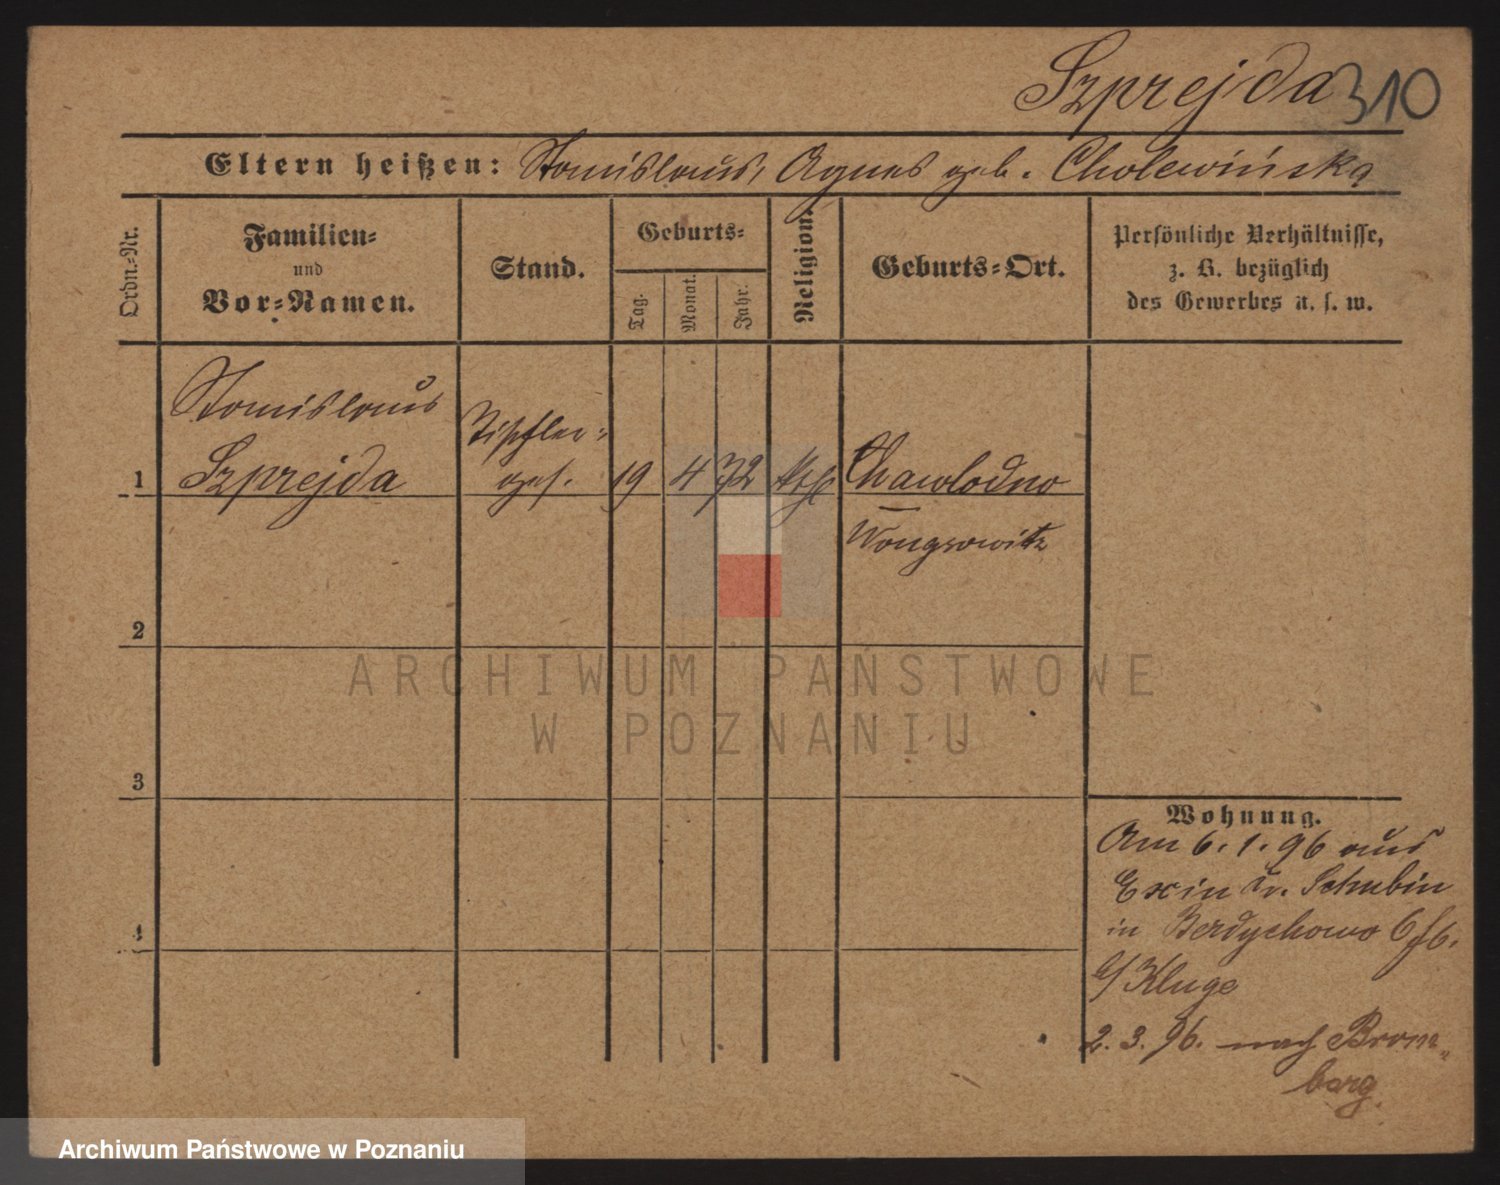 Szprejda 310
Eltern heißen: Stanislaus, Agnes geb. Cholewińska
Ordn.-Nr.
Familien-
und
Vor-Namen.
Stand.
Geburts-
Tag.
Monat.
Jahr.
Religion.
Geburts-Ort.
Persönliche Verhältnisse,
z. B. bezüglich
des Gewerbes u. s. w.
Stanislaus
Szprejda
ges.
1
19 4 72 kth
Chawlodno
Wongrowitz
2
3
4
ARCHIWUM PAŃSTWOWE
W POZNANIU
Wohnung.
Am 6.1.96 aus
Exin Kr. Schubin
in Berdychowo
b/ Kluge
2.3.96. nach Brom-
berg.
Archiwum Państwowe w Poznaniu